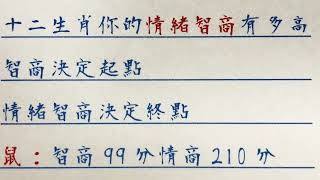 十二生肖你的情緒智商有多高
智商決定起點
情緒智商決定終點
鼠：智商99分情商210分